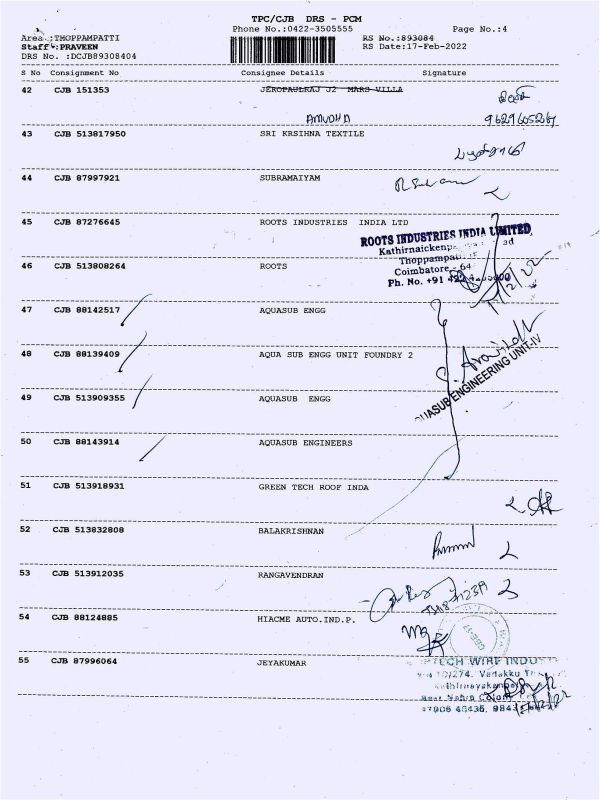 TPC/CJB DRS - PCM
Phone No.:0422-3505555 Page No.:4
Area :THOPPAMPATTI RS No.:893084
Staff :PRAVEEN RS Date:17-Feb-2022
DRS No. :DCJB89308404
S No Consignment No Consignee Details Signature
42 CJB 151353 JEROPAULRAJ J2 MARS VILLA
AMUDHA 9629605267
43 CJB 513817950 SRI KRSIHNA TEXTILE
44 CJB 87997921 SUBRAMAIYAM
45 CJB 87276645 ROOTS INDUSTRIES INDIA LTD
ROOTS INDUSTRIES INDIA LIMITED
Thoppampatti
46 CJB 513808264 ROOTS
Coimbatore - 64
Ph. No. +91 422
17/2/22
47 CJB 88142517 AQUASUB ENGG
48 CJB 88139409 AQUA SUB ENGG UNIT FOUNDRY 2
AQUASUB ENGINEERING UNIT-IV
49 CJB 513909355 AQUASUB ENGG
50 CJB 88143914 AQUASUB ENGINEERS
51 CJB 513918931 GREEN TECH ROOF INDA
52 CJB 513832808 BALAKRISHNAN
53 CJB 513912035 RANGAVENDRAN
54 CJB 88124885 HIACME AUTO.IND.P.
55 CJB 87996064 JEYAKUMAR
TECH WIRE INDU
/274, Vadakku